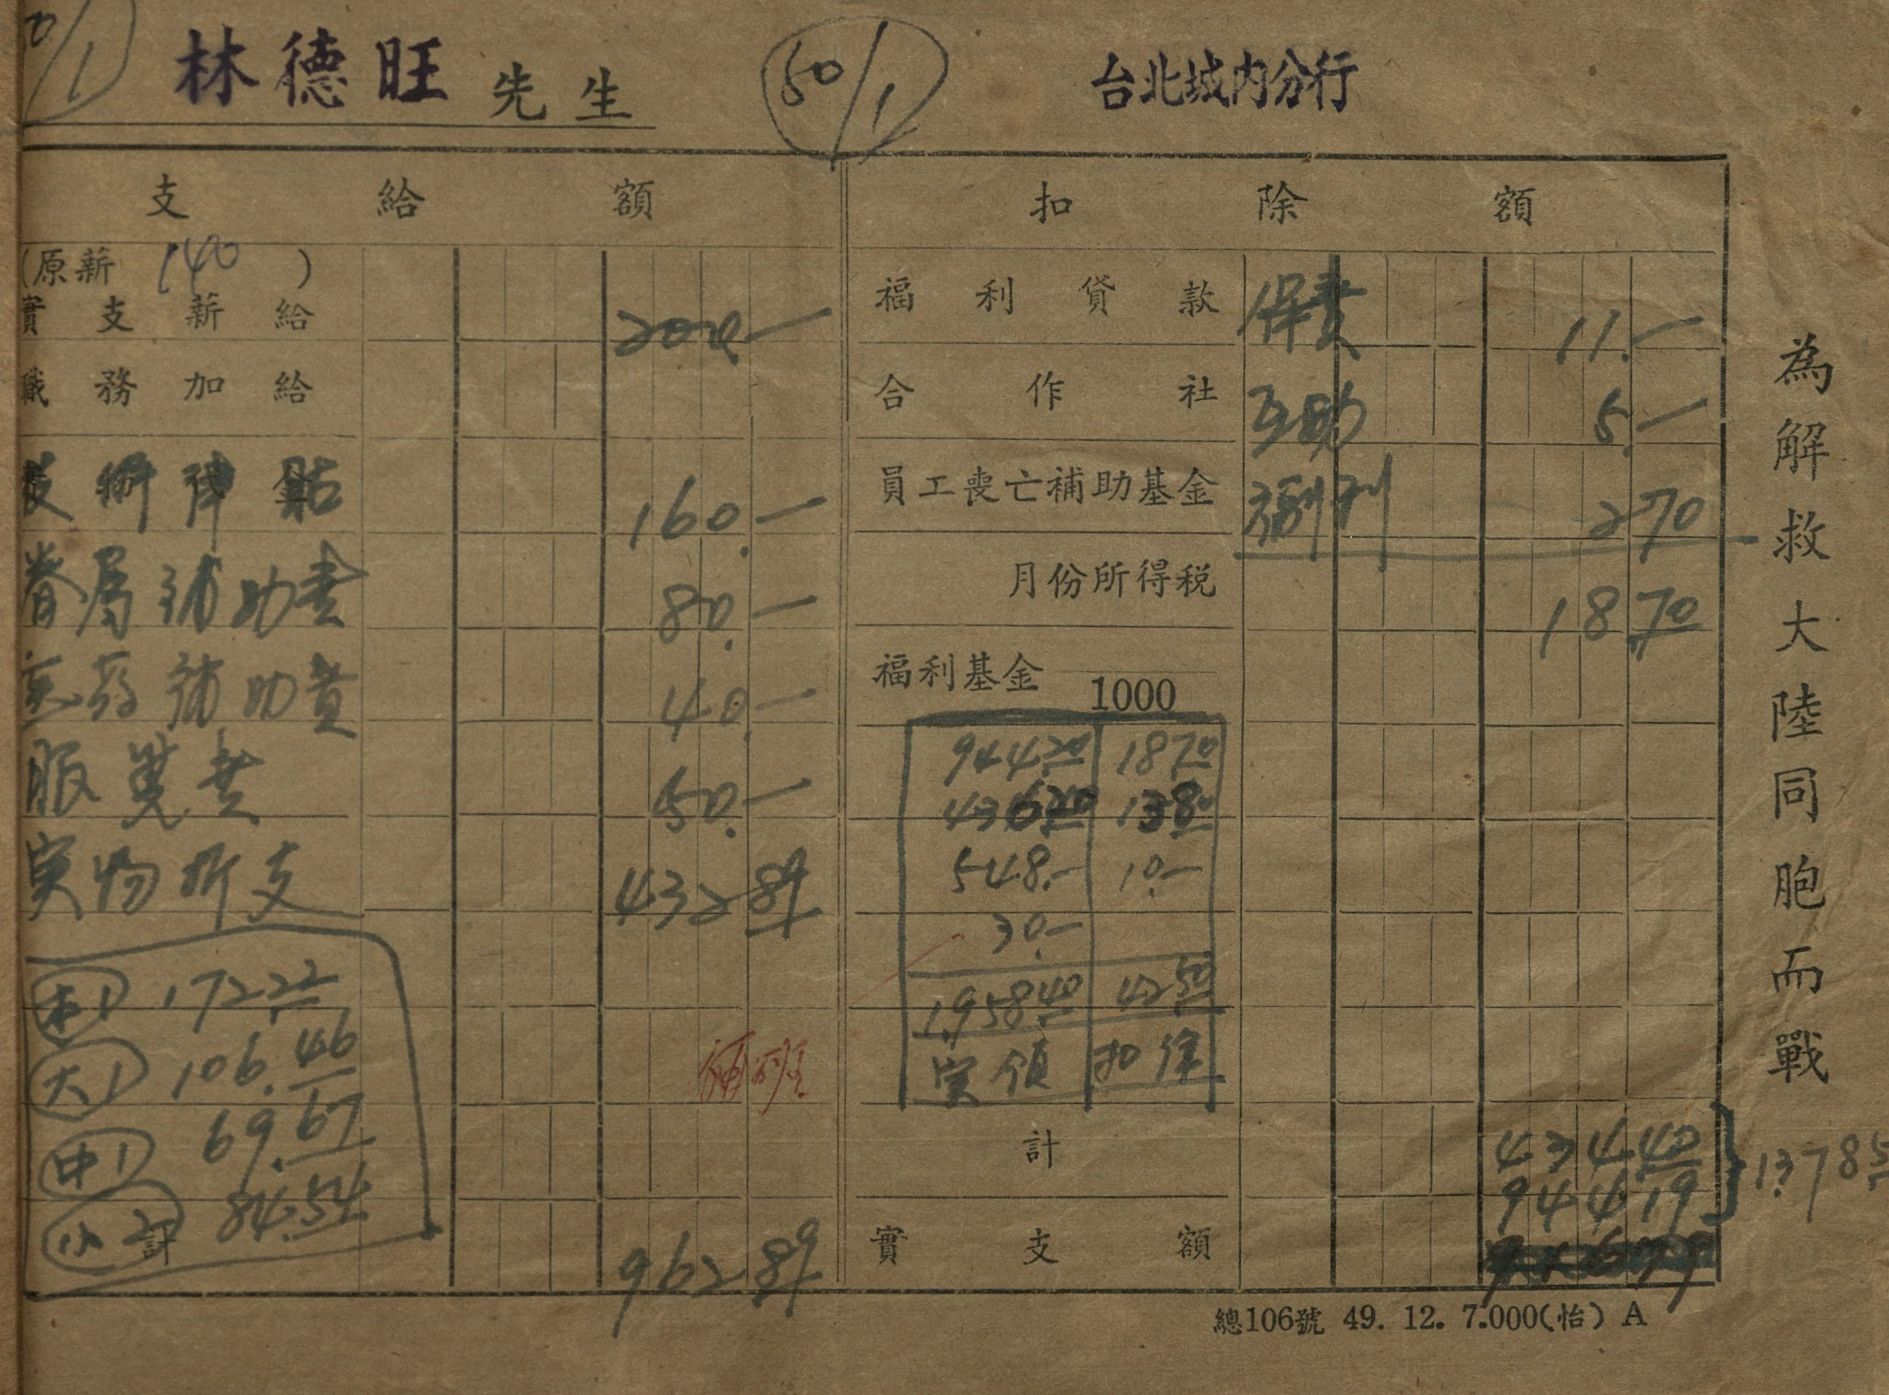 50/1
林德旺先生
50/1
台北城内分行
支給額
(原薪 140 )
實支薪給 200.—
職務加給
技術津貼 160.—
眷屬補助費 80.—
補助費 40.—
服裝費 50.—
实物折支 432 89
本1 172 22
大1 106.46
中1 69.67
小2 84.54
計 962 89
扣除額
福利貸款 保費 11.—
合作社 互助 5.—
員工喪亡補助基金 福利 2 70
月份所得稅 18.70
福利基金 1000
944 20 18 70
436 20 13 80
548.— 10.—
30.—
1,958 40 42 50
実領 扣除
計 434 40
944 19
實支額
為解救大陸同胞而戰
總106號 49. 12. 7.000(怡) A